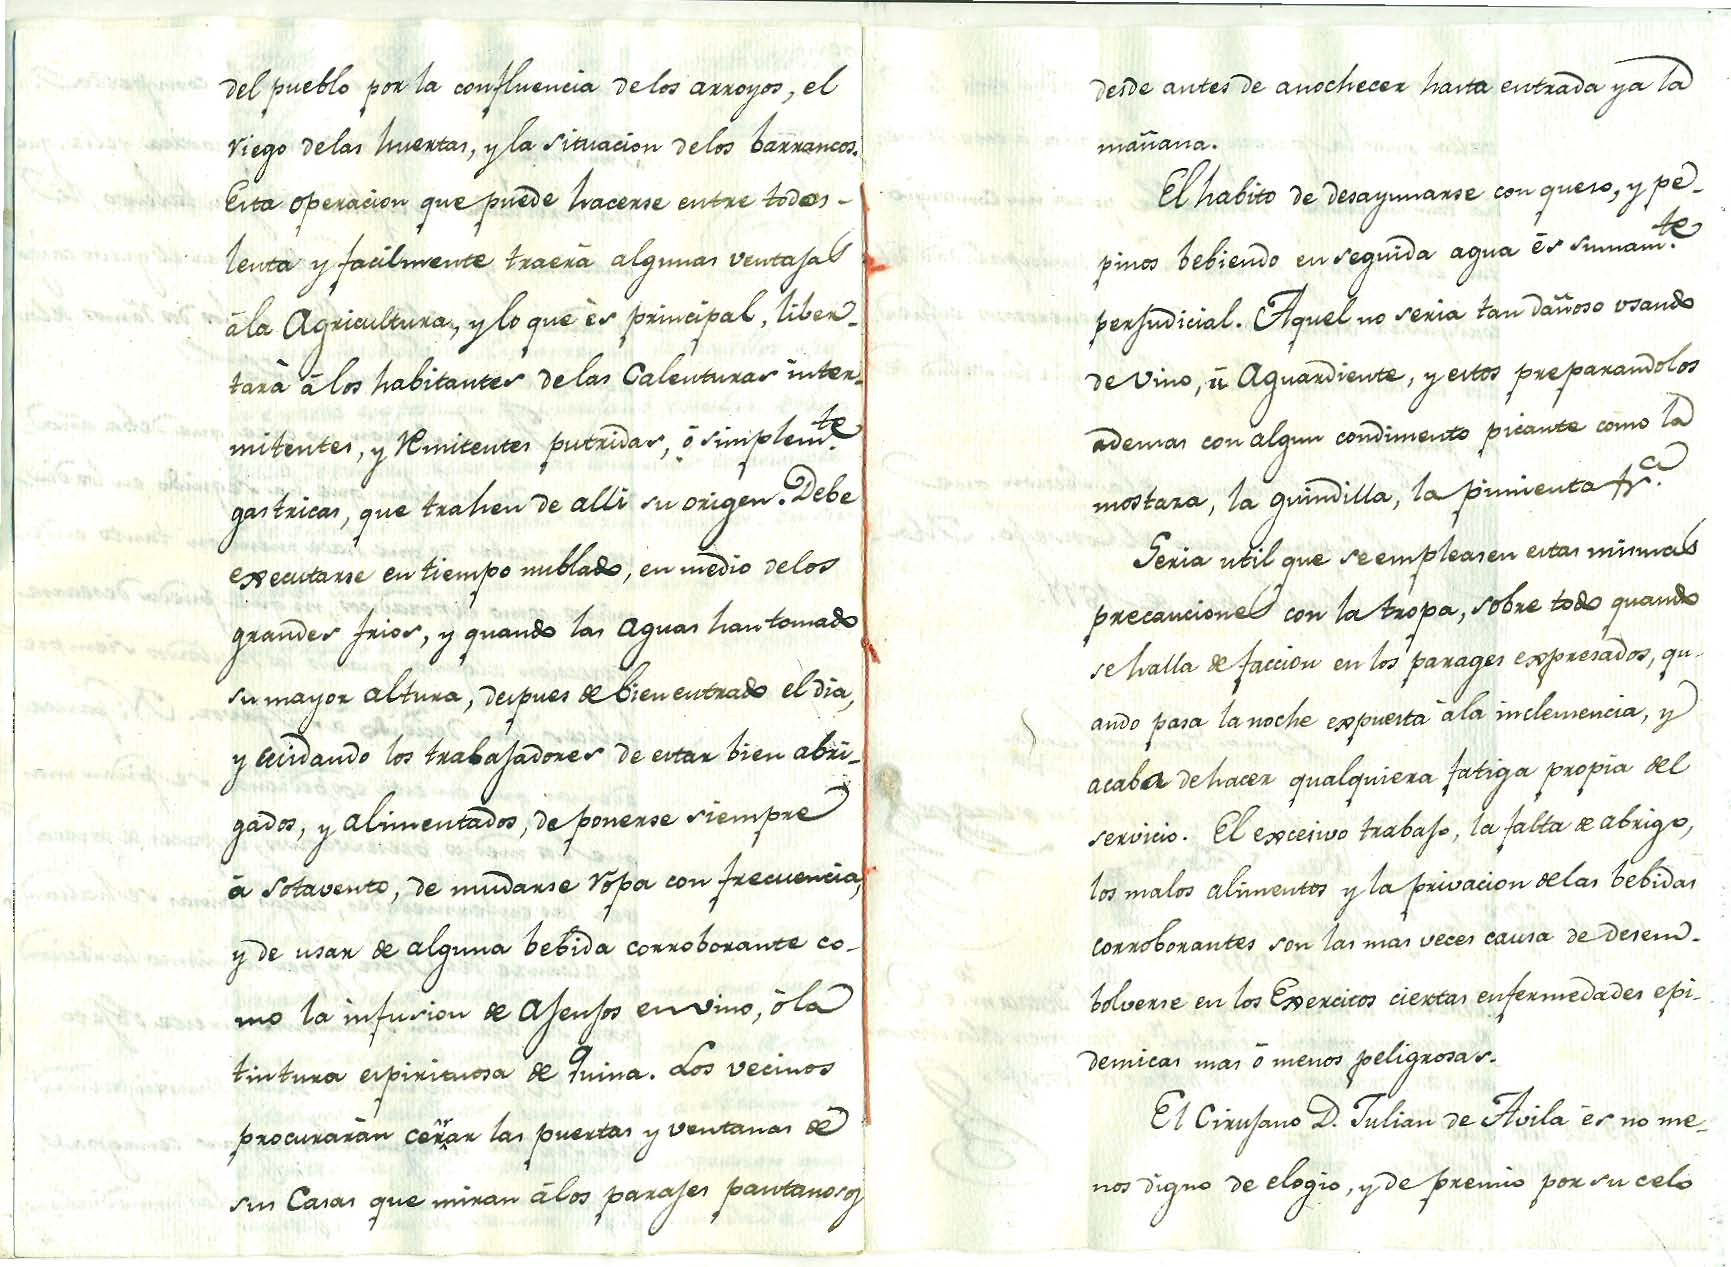 del pueblo por la confluencia de los arroyos, el
riego de las huertas, y la situacion de los barrancos.
Esta operacion que puede hacerse entre todos
lenta y facilmente traerà algunas ventajas
à la Agricultura, y lo que ès principal, liber-
tarà à los habitantes de las Calenturas inter-
mitentes, y Remitentes putridas, ò simplem.te
gastricas, que trahen de alli su origen. Debe
executarse en tiempo nublado, en medio de los
grandes frios, y quando las aguas han tomado
su mayor altura, despues de bien entrado el dia,
y cuidando los trabajadores de estar bien abri-
gados, y alimentados, de ponerse siempre
à sotavento, de mudarse ropa con frecuencia,
y de usar de alguna bebida corroborante co-
mo la infusion de Ajenjos en vino, ò la
tintura espirituosa de Quina. Los vecinos
procuraràn cerrar las puertas y ventanas de
sus Casas que miran à los parajes pantanosos
desde antes de anochecer hasta entrada ya la
mañana.
El habito de desayunarse con queso, y pe-
pinos bebiendo en seguida agua ès sumam.te
perjudicial. Aquel no seria tan dañoso usando
de Vino, ù Aguardiente, y estos preparandolos
ademas con algun condimento picante como la
mostara, la guindilla, la pimienta &.a
Seria util que se empleasen estas mismas
precauciones con la tropa, sobre todo quando
se halla de faccion en los parages expresados, qu-
ando pasa la noche expuesta à la inclemencia, y
acaba de hacer qualquiera fatiga propia del
servicio. El excesivo trabajo, la falta de abrigo,
los malos alimentos y la privacion de las bebidas
corroborantes son las mas veces causa de desem-
bolverse en los Exercitos ciertas enfermedades epi-
demicas mas ò menos peligrosas.
El Cirujano D. Julian de Avila ès no me-
nos digno de elogio, y de premio por su celo